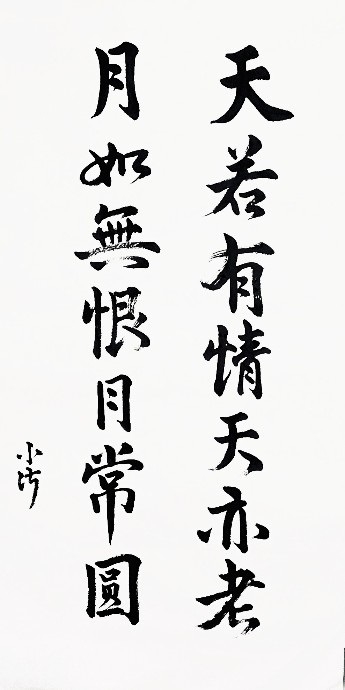 天若有情天亦老
月如無恨月常圓